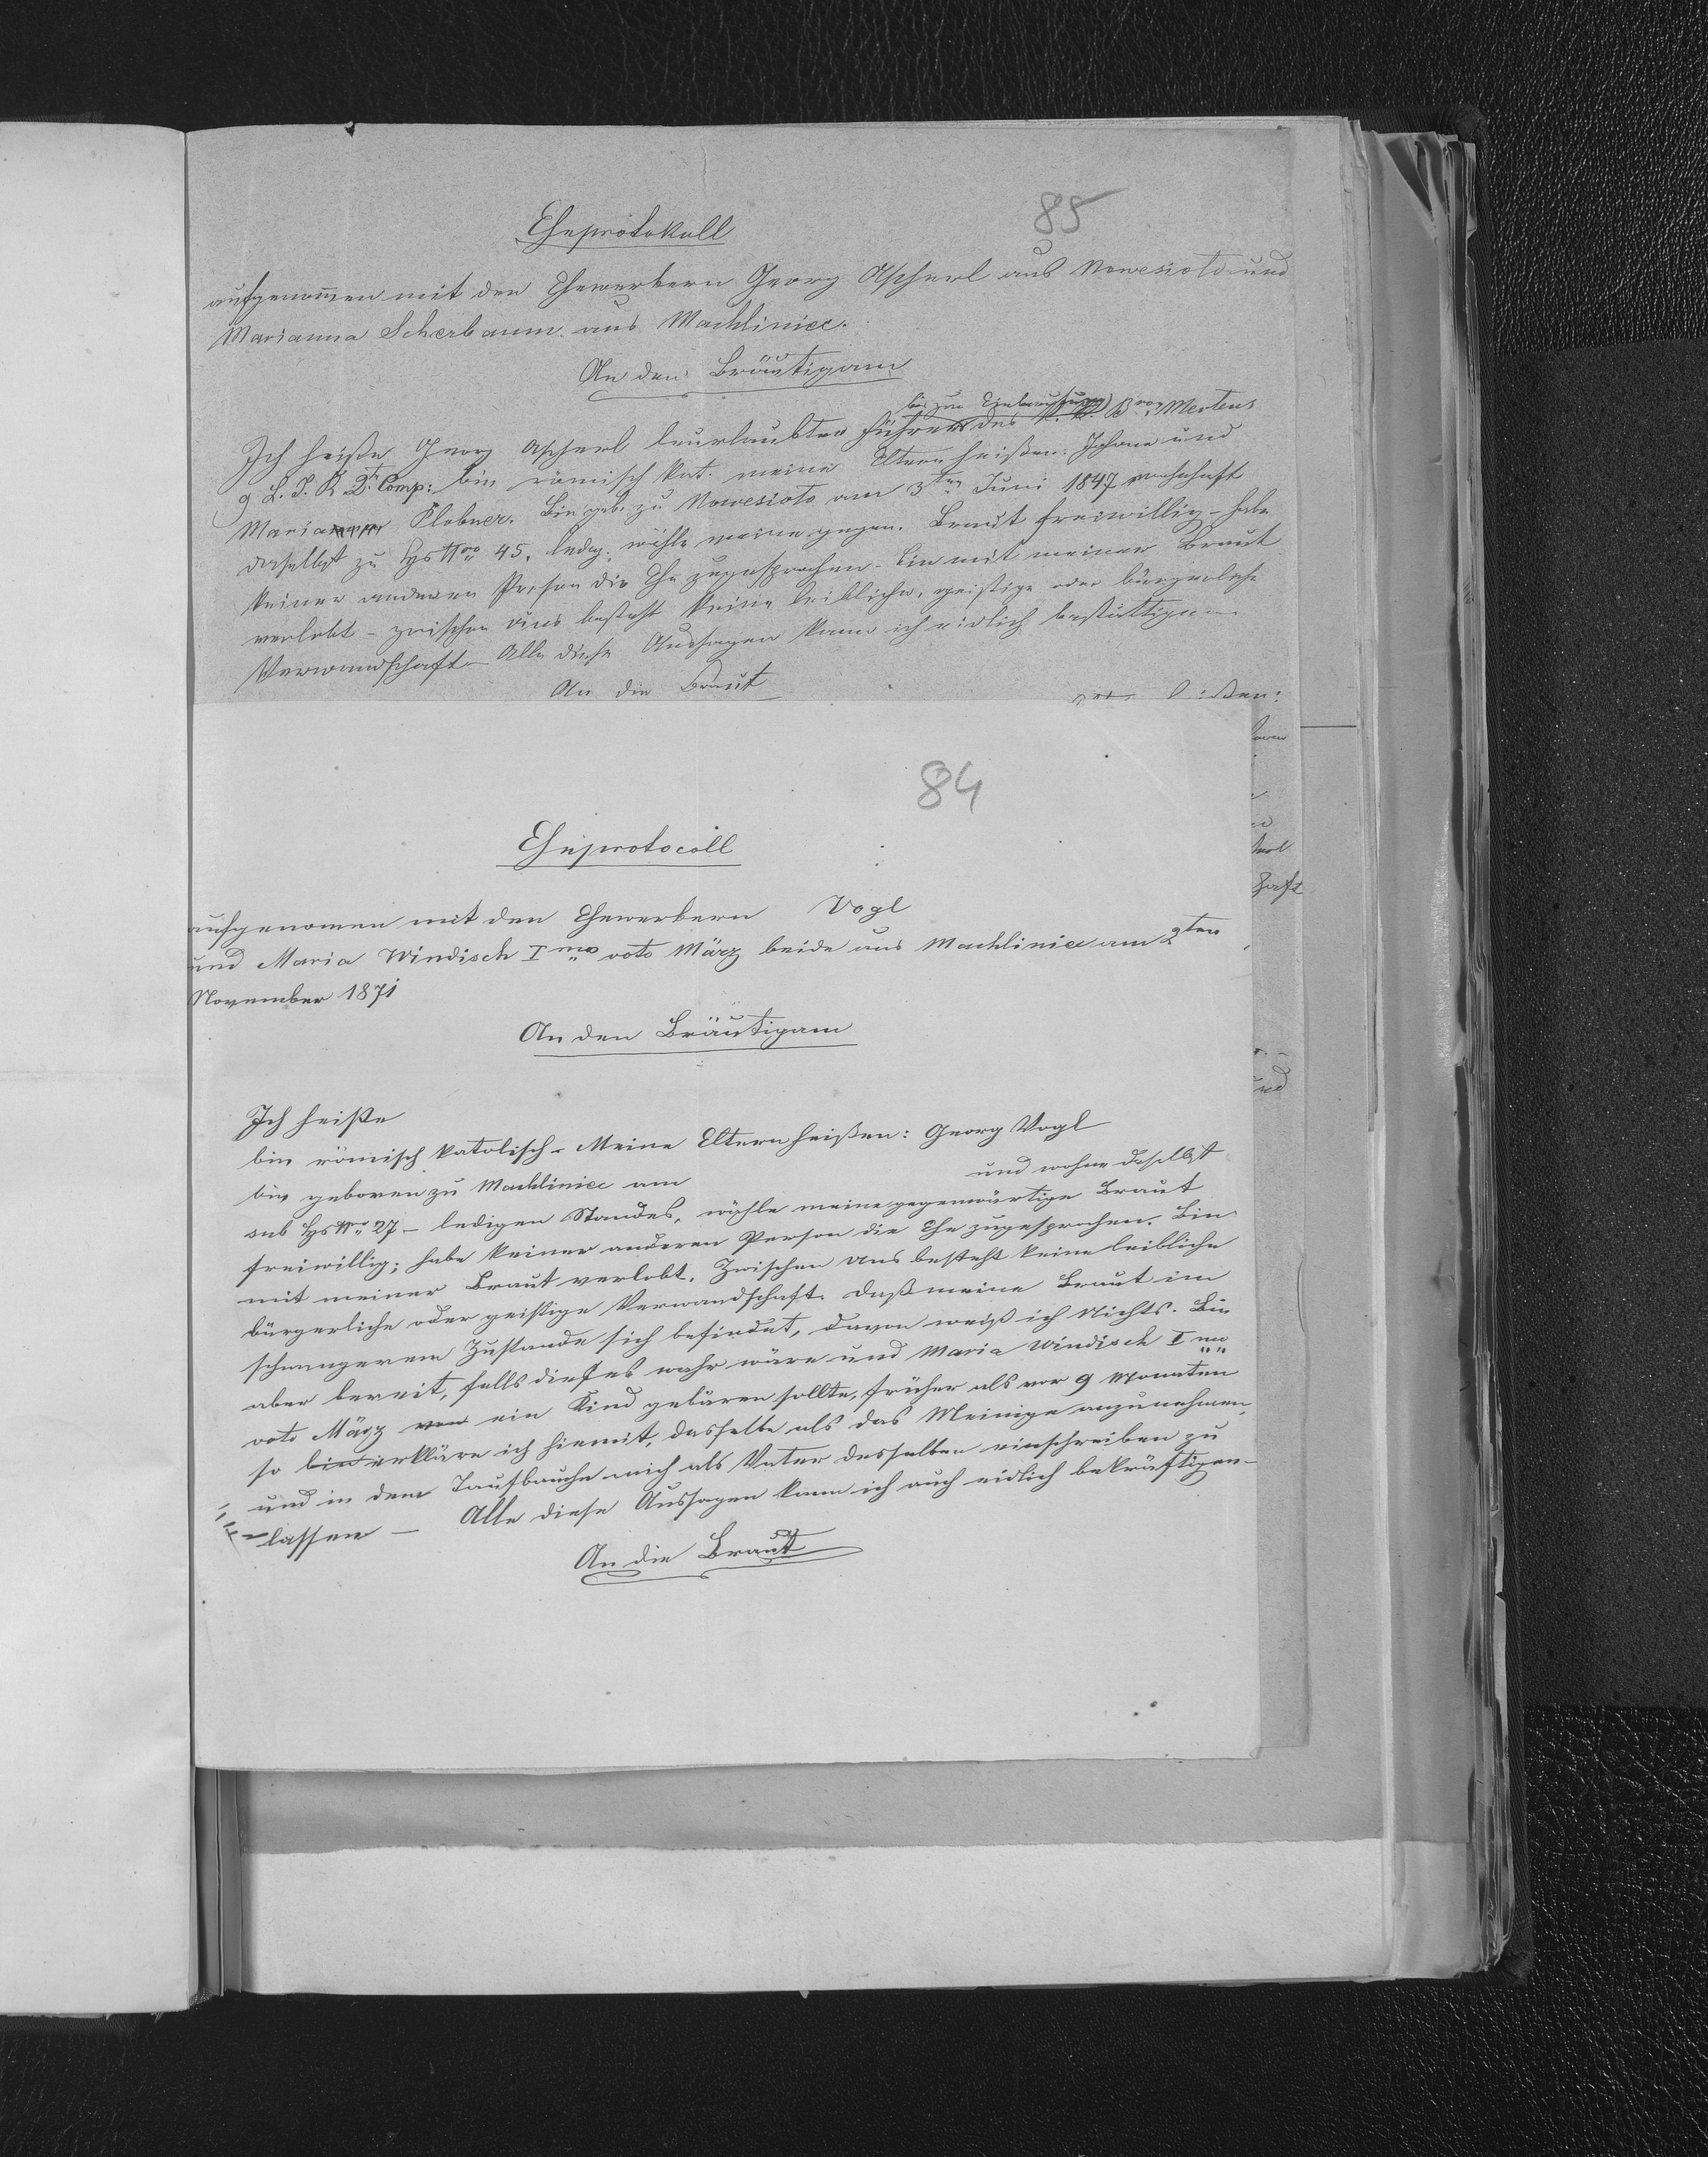 85
Eheprotokoll
aufgenom̅en mit den Ehewerbern Georg Ascherl aus Nowesioto und
Marianna Scherbaum aus Machliniec.
An den Bräutigam
bis zur Einberufung
Ich heiße Georg Ascherl beurlaubter Führer des Mertens
9 L. I. R 2t Comp: bin römisch kat. meine Eltern heißen: Johann und
Maria Plobner. Bin geb. zu Nowesioto am 3ten Juni 1847 wohnhaft
daselbst zu Hs Nro 45, ledig. wähle meine gegen. Braut freiwillig - habe
keiner anderen Person die Ehe zugesprochen - bin mit meiner Braut
verlobt - zwischen uns besteht keine leibliche, geistige oder bürgerliche
Verwandschaft - Alle diese Aussagen kann ich eidlich bestättigen
An die Braut
84
Eheprotocoll
aufgenomen mit den Ehewerbern Vogl
und Maria Windisch Imo voto März beide aus Machliniec am 2ten
November 1871
An den Bräutigam
Ich heiße
bin römisch katolisch - Meine Eltern heißen: Georg Vogl
bin geboren zu Machliniec am und wohne daselbst
sub Hs Nro 27 - ledigen Standes, wähle meine gegenwärtige Braut
freiwillig; habe keiner anderen Person die Ehe zugesprochen. Bin
mit meiner Braut verlobt. Zwischen uns besteht keine leibliche
bürgerliche oder geistige Verwandschaft. Daß meine Braut im
schwangerem Zustande sich befindet, davon weiß ich Nichts. Bin
aber bereit, falls dieses wahr wäre und Maria Windisch Imo
voto März von ein Kind gebären sollte, früher als vor 9 Monaten
so bin erkläre ich hiemit, dasselbe als das Meinige anzunehmen,
und in dem Taufbuche mich als Vater desselben einschreiben zu
lassen — Alle diese Aussagen kann ich auch eidlich bekräftigen -
An die Braut